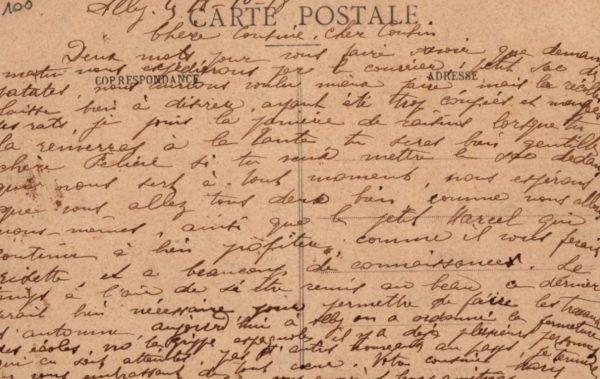 100
Ally, le
CARTE POSTALE
Chère Cousine, cher Cousin
Deux mots pour vous faire savoir que demain
matin nous expédirons par le courrier, petit sac de
CORRESPONDANCE
ADRESSE
patates, nous aurions voulu mieux faire mais la récolte
laisse bien à désirer, ayant été trop coupées et mangées
des rats, je joins la lorsque tu
la renverras à la tante tu seras bien gentille
chère si tu veux mettre le sac dedans
que nous sert à tout moment, nous espérons
que vous allez tous deux bien, comme nous allons
nous-mêmes, ainsi que le petit Marcel qui
continue à bien profiter, comme il vous ferait
risette et a beaucoup de connaissances. Le
temps à l'air de s'être remis au beau ce dernier
serait bien nécessaire pour permettre de faire les travaux
d'automne aujourd'hui à Ally on a ordonné la fermeture
des écoles grippe espagnole, il y a déjà plusieurs personnes
qui en sont atteintes, au pays je termine
en vous embrassant de tout cœur. Votre cousine